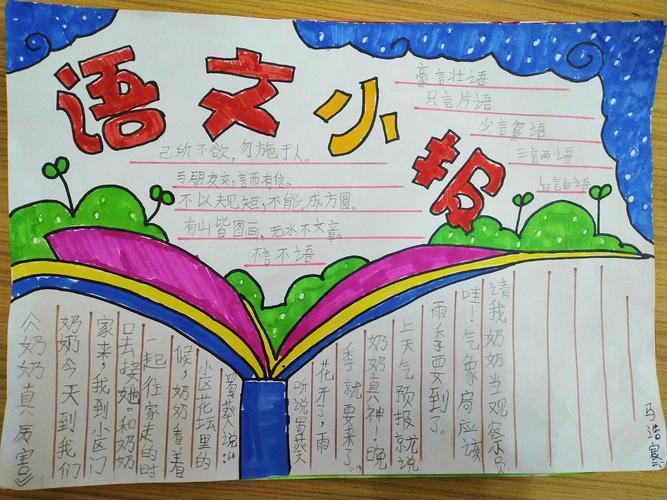 语文小报
豪言壮语
只言片语
少言寡语
三言两语
自言自语
己所不欲,勿施于人。
与朋友交,言而有信。
不以规短,不能,成方圆。
有山皆图画,无水不文章。
不言不语
《奶奶真厉害》
奶奶今天到我们
家来,我到小区门
口去接她。和奶奶
一起往家走的时
候,奶奶看着
小区花坛里的
蜀葵说:“
听说蜀葵
花开了,雨
季就要来了。”
奶奶真神!晚
上天气预报就说
雨季要到了。
哇!气象局应该
请我奶奶当观察员